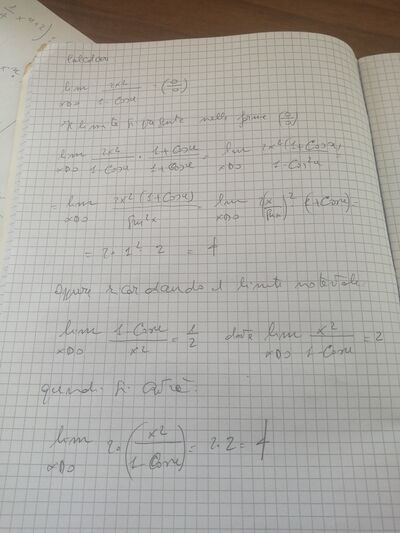 Calcolare
lim x→0 2x²/(1-Cosx) = (0/0)
Il limite si presenta nella forma (0/0)
lim x→0 2x²/(1-Cosx) · (1+Cosx)/(1+Cosx) = lim x→0 2x²(1+Cosx)/(1-Cos²x)
= lim x→0 2x²(1+Cosx)/Sin²x = lim x→0 2(x/Sinx)² (1+Cosx) =
= 2·1²·2 = 4
Oppure ricordando il limite notevole
lim x→0 (1-Cosx)/x² = 1/2 lim x→0 x²/(1-Cosx) = 2
quindi si
lim x→0 2·(x²/(1-Cosx)) = 2·2 = 4